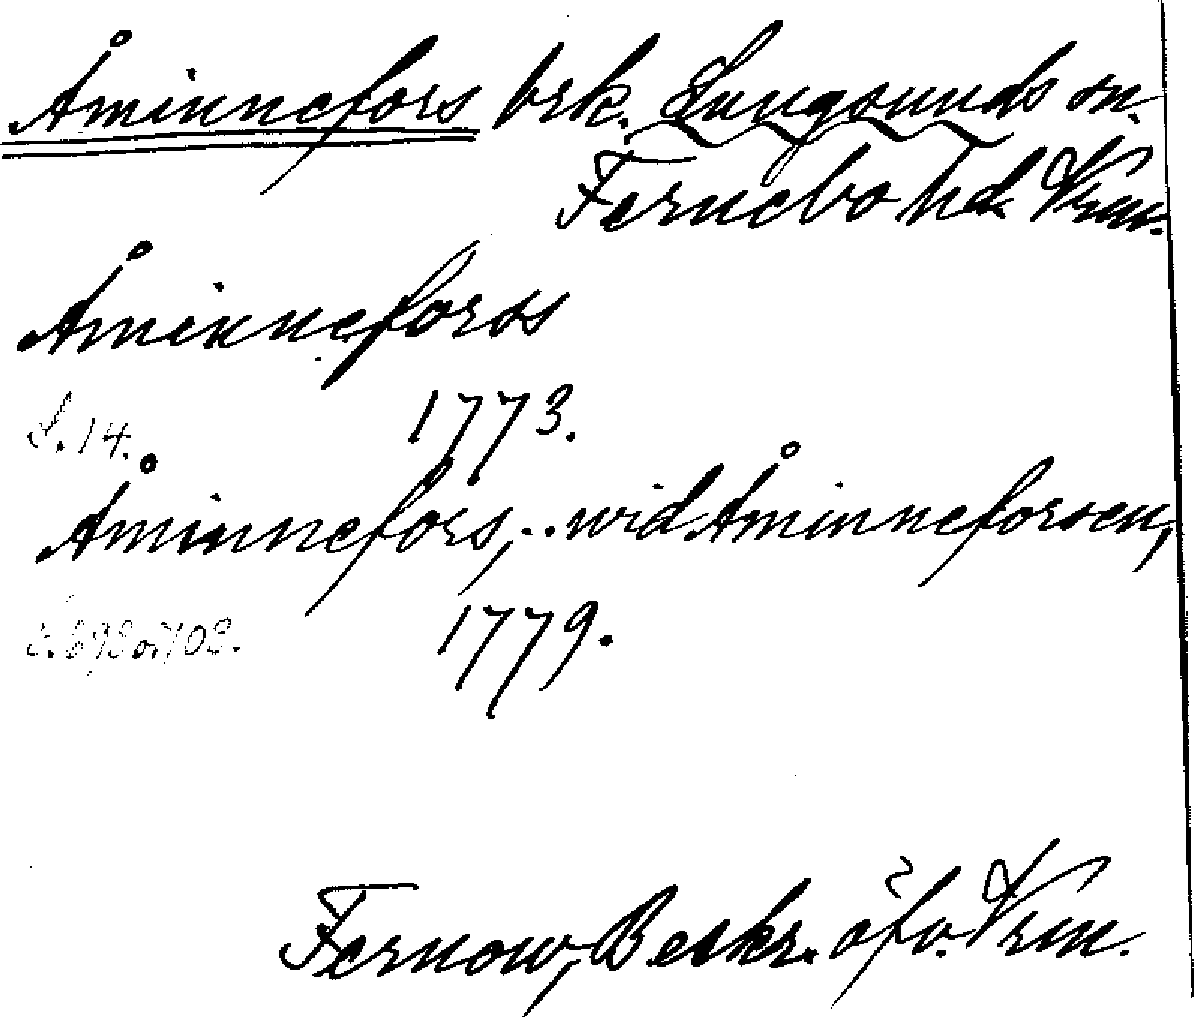 Åminnefors brk. Lungsunds sn.
Fernebo hd. Vrm.
Åminneforss
S. 14. 1773.
Åminnefors, .. wid Åminneforsen,
s. 698 o. 708. 1779.
Fernow, Beskr. öfv. Vrm.